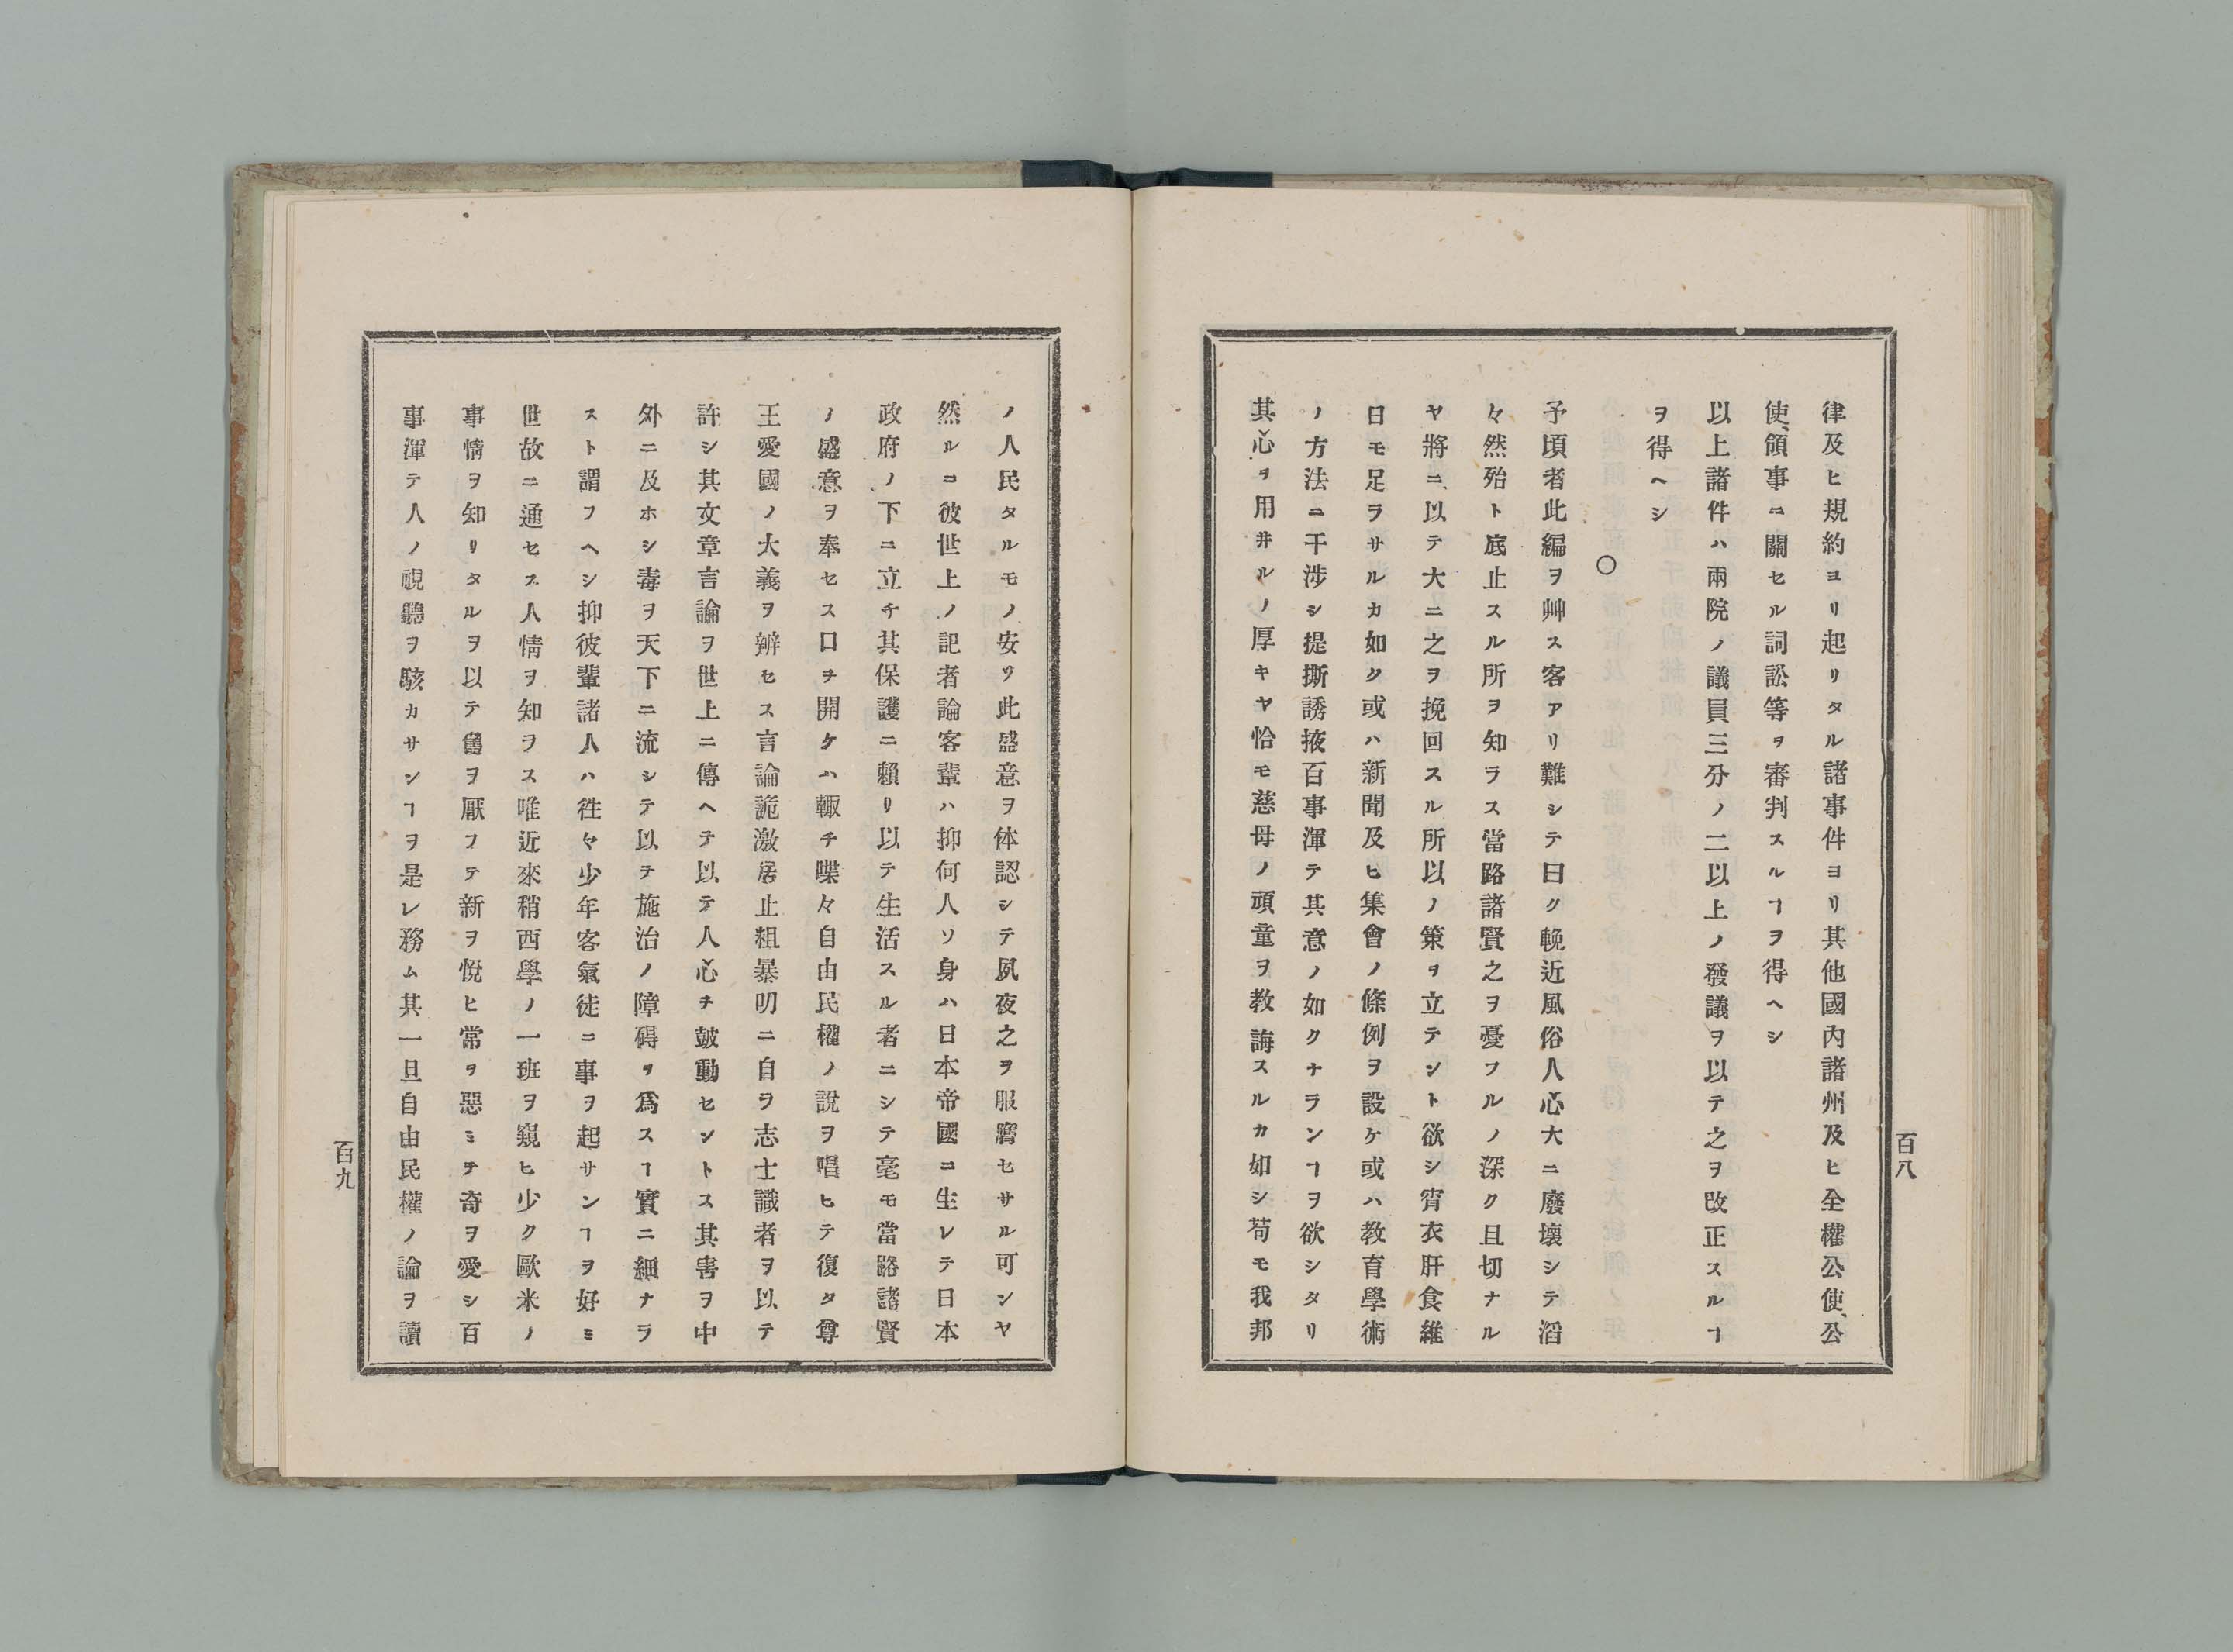 律及ヒ規約ヨリ起リタル諸事件ヨリ其他國內諸州及ヒ全權公使、公
使、領事ニ關セル詞訟等ヲ審判スルヿヲ得ヘシ
以上諸件ハ兩院ノ議員三分ノ二以上ノ發議ヲ以テ之ヲ改正スルヿ
ヲ得ヘシ
○
予頃者此編ヲ艸ス客アリ難シテ曰ク輓近風俗人心大ニ廢壞シテ滔
々然殆ト底止スル所ヲ知ラス當路諸賢之ヲ憂フルノ深ク且切ナル
ヤ將ニ以テ大ニ之ヲ挽回スル所以ノ策ヲ立テント欲シ宵衣肝食維
日モ足ラサルカ如ク或ハ新聞及ヒ集會ノ條例ヲ設ケ或ハ教育學術
ノ方法ニ干涉シ提撕誘掖百事渾テ其意ノ如クナランヿヲ欲シタリ
其心ヲ用井ルノ厚キヤ恰モ慈母ノ頑童ヲ教誨スルカ如シ苟モ我邦
百八
ノ人民タルモノ安ソ此盛意ヲ体認シテ夙夜之ヲ服膺セサル可ンヤ
然ルニ彼世上ノ記者論客輩ハ抑何人ソ身ハ日本帝國ニ生レテ日本
政府ノ下ニ立チ其保護ニ賴リ以テ生活スル者ニシテ毫モ當路諸賢
ノ盛意ヲ奉セス口ヲ開ケハ輙チ喋々自由民權ノ說ヲ唱ヒテ復タ尊
王愛國ノ大義ヲ辨セス言論詭激居止粗暴叨ニ自ラ志士識者ヲ以テ
許シ其文章言論ヲ世上ニ傳ヘテ以テ人心ヲ皷動セントス其害ヲ中
外ニ及ホシ毒ヲ天下ニ流シテ以テ施治ノ障碍ヲ爲スヿ實ニ細ナラ
スト謂フヘシ抑彼輩諸人ハ徃々少年客氣徒ニ事ヲ起サンヿヲ好ミ
世故ニ通セス人情ヲ知ヲス唯近來稍西學ノ一班ヲ窺ヒ少ク歐米ノ
事情ヲ知リタルヲ以テ舊ヲ厭フテ新ヲ悅ヒ常ヲ惡ミテ奇ヲ愛シ百
事渾テ人ノ視聽ヲ駭カサンヿヲ是レ務ム其一旦自由民權ノ論ヲ讀
百九